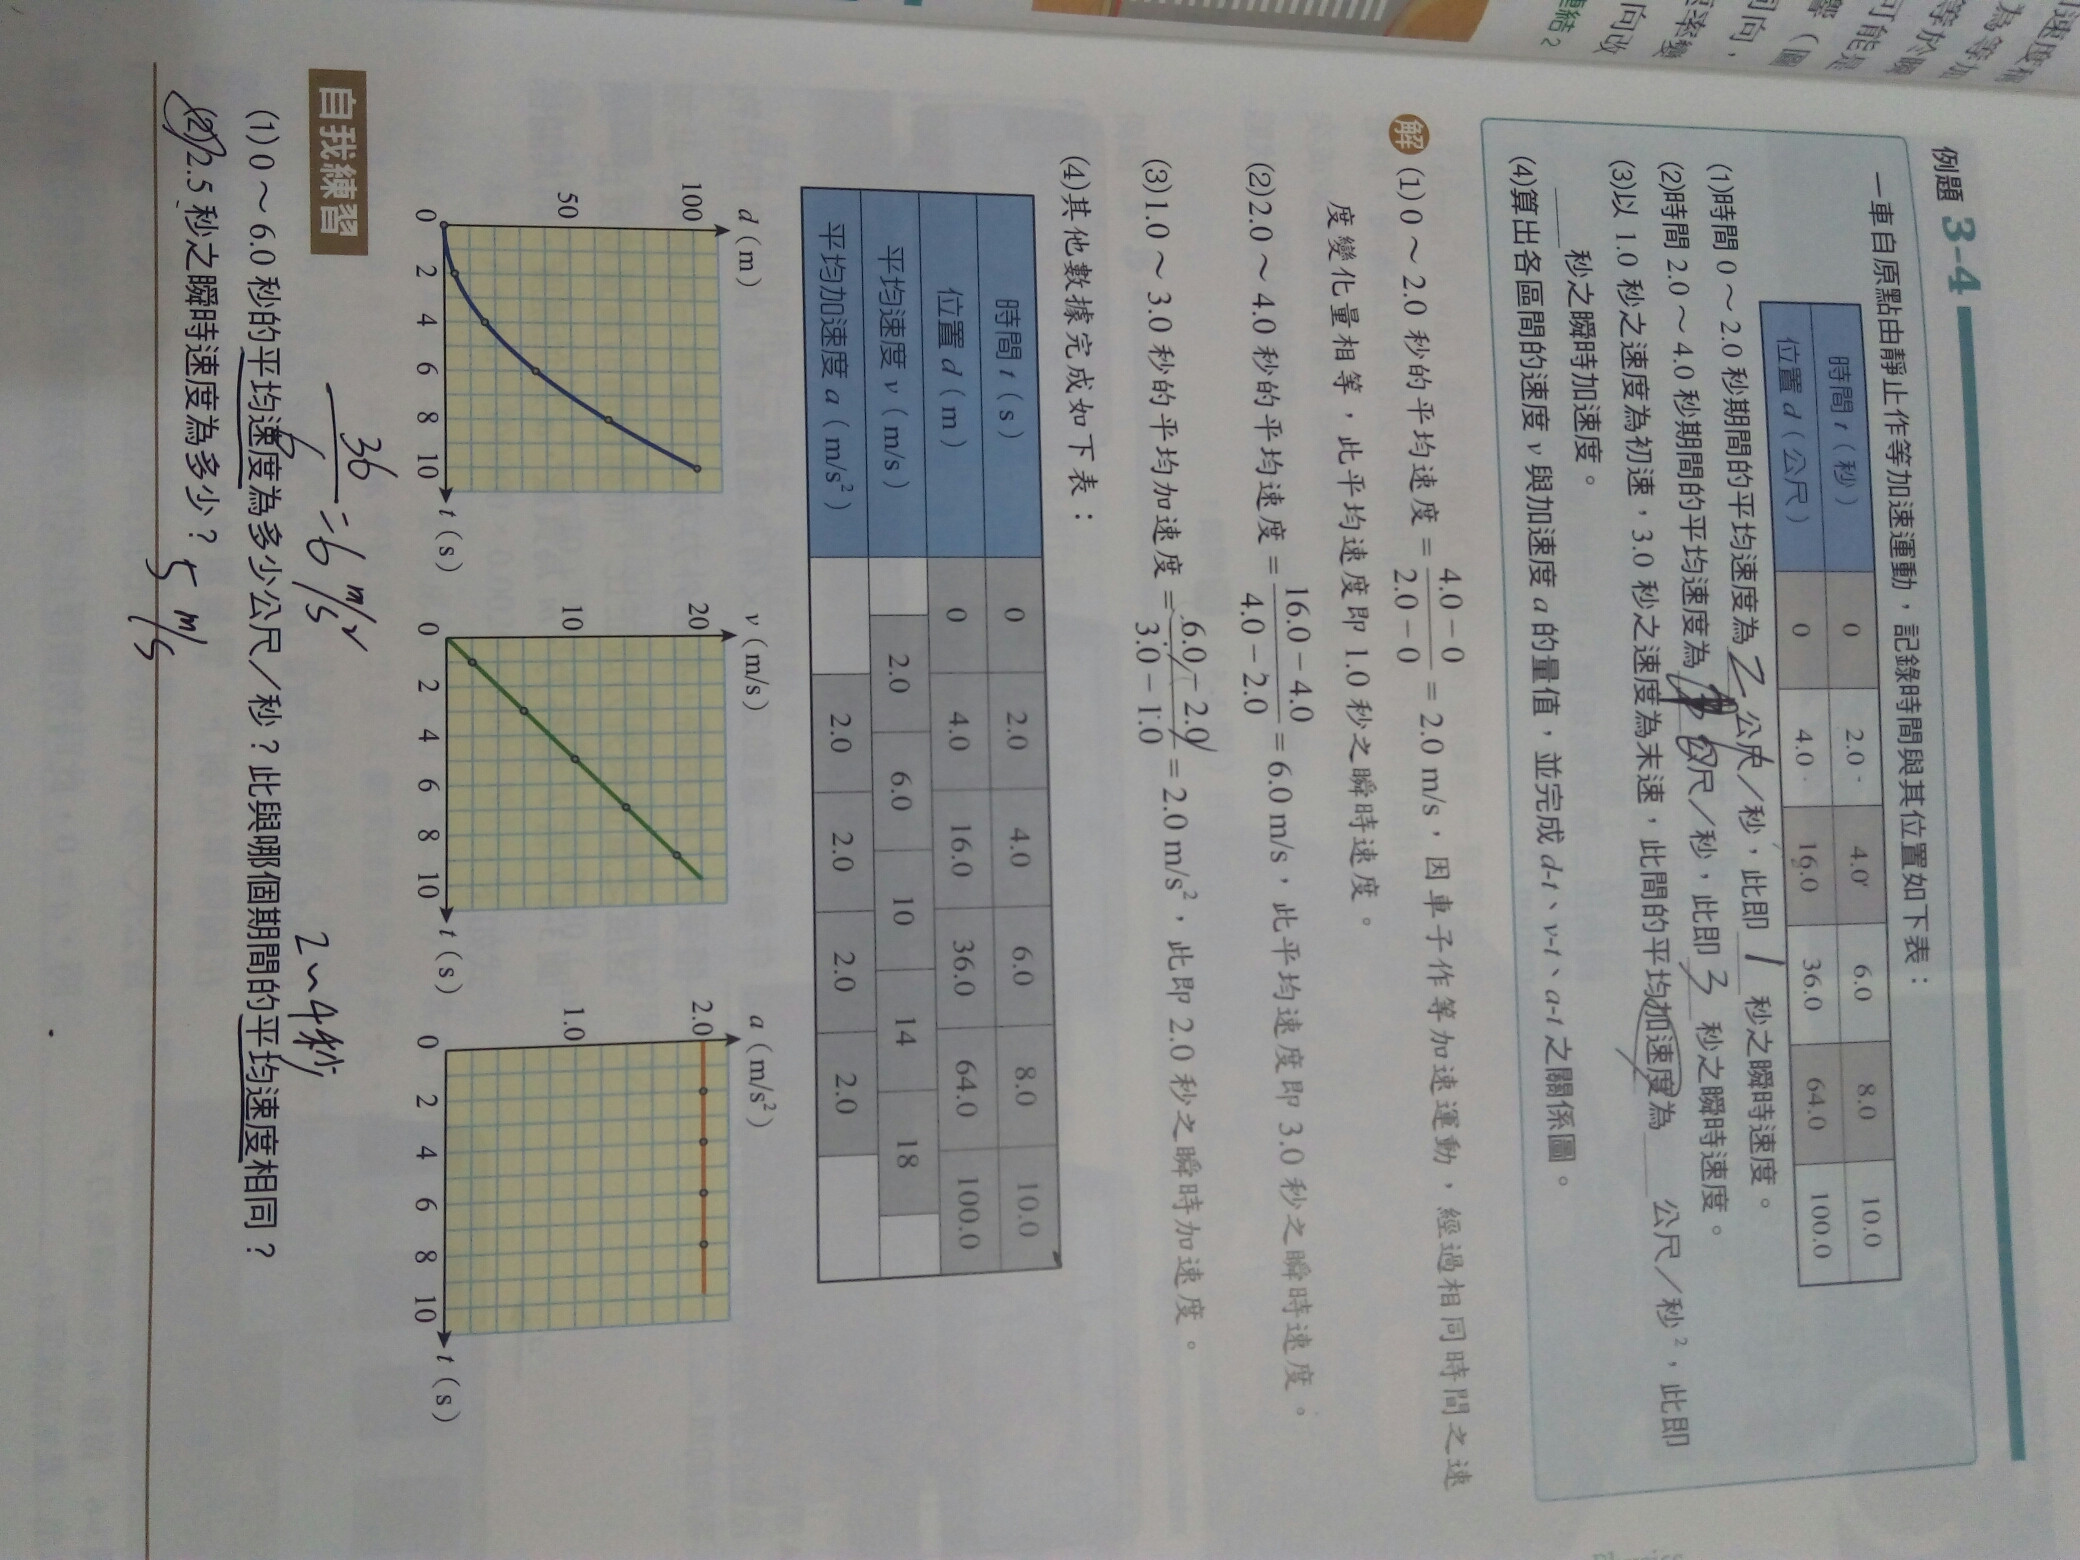 例題 3-4
一車自原點由靜止作等加速運動，記錄時間與其位置如下表：
時間 t（秒） 0 2.0 4.0 6.0 8.0 10.0
位置 d（公尺） 0 4.0 16.0 36.0 64.0 100.0
(1)時間 0～2.0 秒期間的平均速度為 2 公尺／秒，此即 1 秒之瞬時速度。
(2)時間 2.0～4.0 秒期間的平均速度為 6 公尺／秒，此即 3 秒之瞬時速度。
(3)以 1.0 秒之速度為初速，3.0 秒之速度為末速，此間的平均加速度為 公尺／秒²，此即
秒之瞬時加速度。
(4)算出各區間的速度 v 與加速度 a 的量值，並完成 d-t、v-t、a-t 之關係圖。
解 (1) 0～2.0 秒的平均速度 = (4.0－0)/(2.0－0) = 2.0 m/s，因車子作等加速運動，經過相同時間之速
度變化量相等，此平均速度即 1.0 秒之瞬時速度。
(2) 2.0～4.0 秒的平均速度 = (16.0－4.0)/(4.0－2.0) = 6.0 m/s，此平均速度即 3.0 秒之瞬時速度。
(3) 1.0～3.0 秒的平均加速度 = (6.0－2.0)/(3.0－1.0) = 2.0 m/s²，此即 2.0 秒之瞬時加速度。
(4)其他數據完成如下表：
時間 t（s） 0 2.0 4.0 6.0 8.0 10.0
位置 d（m） 0 4.0 16.0 36.0 64.0 100.0
平均速度 v（m/s） 2.0 6.0 10 14 18
平均加速度 a（m/s²） 2.0 2.0 2.0 2.0
d（m）
100
50
0 2 4 6 8 10 t（s）
v（m/s）
20
10
0 2 4 6 8 10 t（s）
a（m/s²）
2.0
1.0
0 2 4 6 8 10 t（s）
自我練習
36/6 = 6 m/s
2～4秒
(1) 0～6.0 秒的平均速度為多少公尺／秒？此與哪個期間的平均速度相同？
(2) 2.5 秒之瞬時速度為多少？ 5 m/s